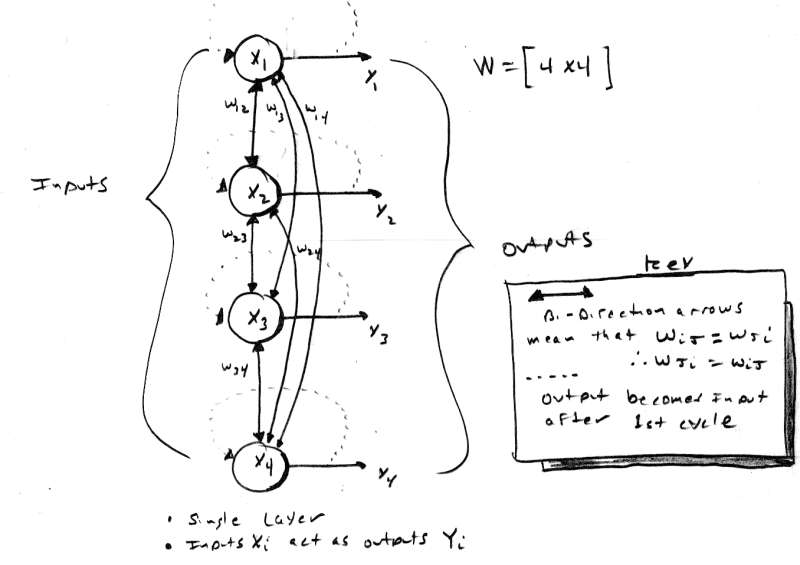 X1
Y1
W = [4 x 4]
W12
W13
W14
Inputs
X2
Y2
W23
W24
Outputs
Key
X3
Y3
Bi-Direction arrows
mean that Wij = Wji
∴ Wji = Wij
W34
Output becomes Input
after 1st cycle
X4
Y4
• Single Layer
• Inputs Xi act as outputs Yi